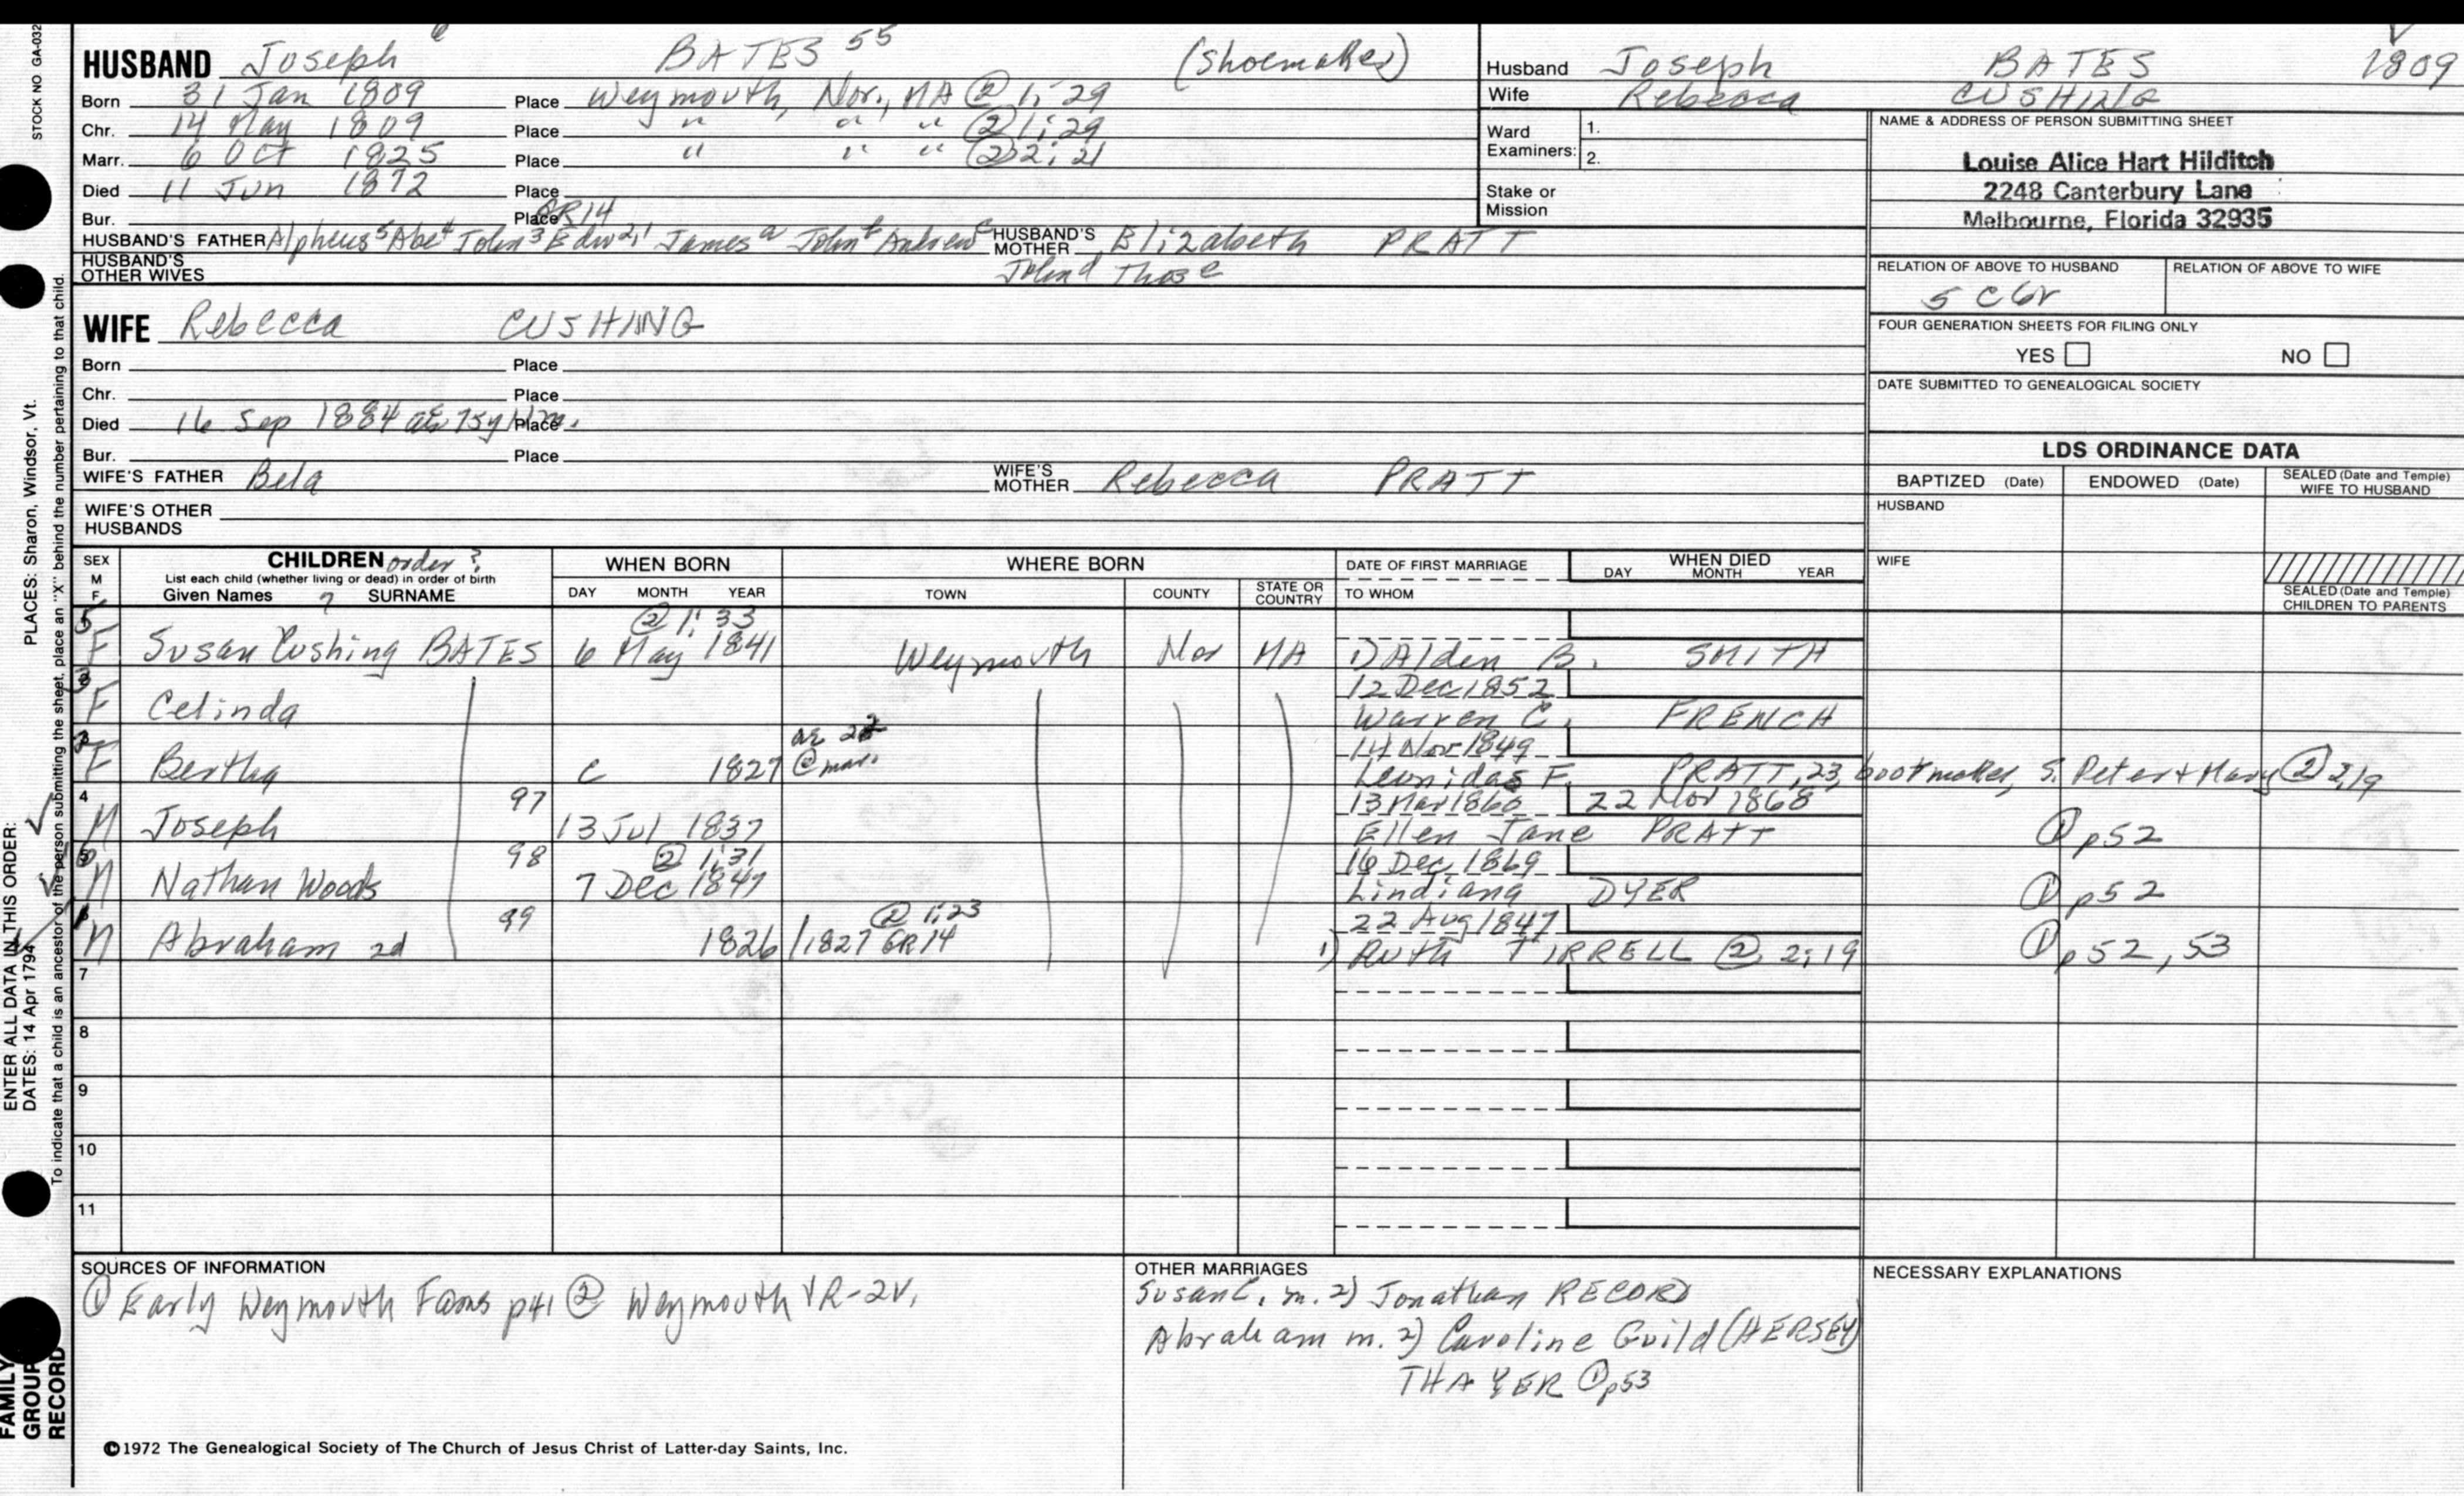 STOCK NO GA-032
HUSBAND Joseph 6 BATES 55 (shoemaker)
Born 31 Jan 1809 Place Weymouth, Nor., MA ② 1;29
Chr. 14 May 1809 Place " " " ② 1;29
Marr. 6 Oct 1825 Place " " " ② 2;21
Died 11 Jun 1872 Place
Bur. Place GR14
HUSBAND'S FATHER Alpheus 5 Abe 4 John 3 Edw 2,1 James a John b Andrew c HUSBAND'S MOTHER Elizabeth PRATT
HUSBAND'S OTHER WIVES John d Thos e
Husband Joseph BATES 1809
Wife Rebecca CUSHING
Ward Examiners: 1.
2.
Stake or Mission
NAME & ADDRESS OF PERSON SUBMITTING SHEET
Louise Alice Hart Hilditch
2248 Canterbury Lane
Melbourne, Florida 32935
RELATION OF ABOVE TO HUSBAND RELATION OF ABOVE TO WIFE
5 C 6r
FOUR GENERATION SHEETS FOR FILING ONLY
YES NO
DATE SUBMITTED TO GENEALOGICAL SOCIETY
WIFE Rebecca CUSHING
Born Place
Chr. Place
Died 16 Sep 1884 ae 75y Place
Bur. Place
WIFE'S FATHER Bela WIFE'S MOTHER Rebecca PRATT
WIFE'S OTHER HUSBANDS
LDS ORDINANCE DATA
BAPTIZED (Date) ENDOWED (Date) SEALED (Date and Temple) WIFE TO HUSBAND
HUSBAND
WIFE
SEALED (Date and Temple) CHILDREN TO PARENTS
SEX M F
CHILDREN order?
List each child (whether living or dead) in order of birth
Given Names ? SURNAME
WHEN BORN
DAY MONTH YEAR
WHERE BORN
TOWN COUNTY STATE OR COUNTRY
DATE OF FIRST MARRIAGE
TO WHOM
WHEN DIED
DAY MONTH YEAR
5 ② 1;33
F Susan Cushing BATES 6 May 1841 Weymouth Nor MA 1) Alden B. SMITH
12 Dec 1852
F Celinda Warren C. FRENCH
ae 22 14 Nov 1849
F Bertha c 1827 @ mar. Leonidas F. PRATT, 23, bootmaker, S. Peter + Mary ② 2;19
4 97 13 Mar 1860 22 Nov 1868
M Joseph 13 Jul 1837 Ellen Jane PRATT ① p52
98 ② 1;31 16 Dec 1869
M Nathan Woods 7 Dec 1847 Lindiana DYER ① p52
99 ② 1;23 22 Aug 1847
M Abraham 2d 1826/1827 GR14 1) Ruth TIRRELL ② 2;19 ① p52, 53
7
8
9
10
11
SOURCES OF INFORMATION
① Early Weymouth Fams p41 ② Weymouth VR-2V.
OTHER MARRIAGES
Susan C. m. 2) Jonathan RECORD
Abraham m. 2) Caroline Guild (HERSEY)
THAYER ① p53
NECESSARY EXPLANATIONS
©1972 The Genealogical Society of The Church of Jesus Christ of Latter-day Saints, Inc.
ENTER ALL DATA IN THIS ORDER:
PLACES: Sharon, Windsor, Vt.
DATES: 14 Apr 1794
To indicate that a child is an ancestor of the person submitting the sheet, place an "X" behind the number pertaining to that child.
FAMILY
GROUP
RECORD